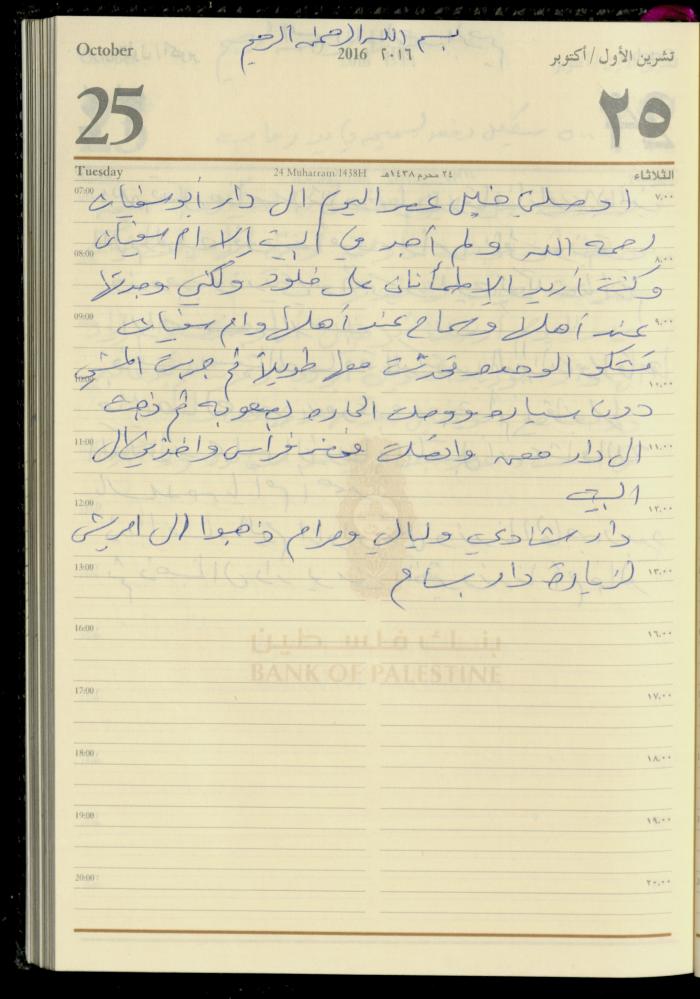 بسم الله الرحمن الرحيم
October
2016 ٢٠١٦
تشرين الأول / أكتوبر
25
٢٥
Tuesday
24 Muharram 1438H
٢٤ محرم ١٤٣٨هـ
الثلاثاء
07:00 ٧,٠٠
اوصلني خليل عصر اليوم الى دار أبو سفيان
رحمه الله ولم أجد في البيت إلا ام سفيان
08:00 ٨,٠٠
وكنت أريد الإطمأنان على خلود ولكني وجدتها
09:00 ٩,٠٠
عند أهلها وسماح عند أهلها وام سفيان
تشكو الوحده تحدثت معها طويلاً ثم جربت المشي
10:00 ١٠,٠٠
دون سياره ووصلت الحاره بصعوبه ثم ذهبت
11:00 ١١,٠٠
الى دار معن واتصلت فحضر فراس واخذني الى
البيت
12:00 ١٢,٠٠
دار شادي وليالي ومرام ذهبوا الى امريش
13:00 ١٣,٠٠
لزيارة دار بسام
16:00 ١٦,٠٠
بنك فلسطين
BANK OF PALESTINE
17:00 ١٧,٠٠
18:00 ١٨,٠٠
19:00 ١٩,٠٠
20:00 ٢٠,٠٠